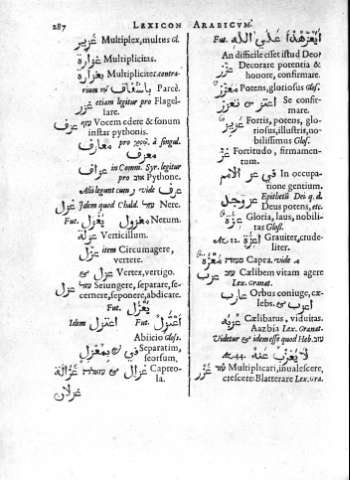 287 LEXICON ARABICUM.
غزير Multiplex, multus Gl.
غزارة Multiplicitas.
بغزارة Multipliciter. contra-
Parcè.
غزر etiam legitur pro Flagel-
lare.
عزف Vocem edere & sonum
instar pythonis.
معازف pro à singul.
معزف
عزاف in Comm. Syr. legitur
pro Pythone.
Alii legunt cum vide عرف
غزل Idem quod Chald. Nere.
Fut. يغزل مغزول Netum.
غزلة Verticillum.
غزل item Circumagere,
vertere.
غزل & Vertex, vertigo.
عزل Seiungere, separare, se-
cernere, seponere, abdicare.
Fut. يعزل
Idem اعتزل Fut.
Abiicio Glos.
في بمعزل & Separatim,
seorsum,
غزالة & غزال Capreo-
la.
غزلان
Fut. أيعز هذا على الله
An difficile esset istud Deo?
عزر Decorare potentia &
honore, confirmare.
معزز Potens, gloriosus Glos.
اعتز & تعزز Se confir-
mare.
عزيز Fortis, potens, glo-
riosus, illustris, no-
bilissimus Glos.
عز Fortitudo, firmamen-
tum.
في عز الأمم In occupa-
tione gentium.
عز وجل Epitheta Dei q. d.
Deus potens, etc.
عزة Gloria, laus, nobili-
tas Glos.
Act. 12. Graviter, crude-
liter.
معزة Capra. vide
عزب Cælibem vitam agere
Lex. Granat.
عازب Orbus coniuge, cæ-
lebs. & اعزب
عزبة Cælibatus, viduitas.
Aazbia Lex. Granat.
Videtur & idem esse quod Heb.
لا يعزب عنه
غزر Multiplicari, invalescere,
crescere Blatterare Lex.